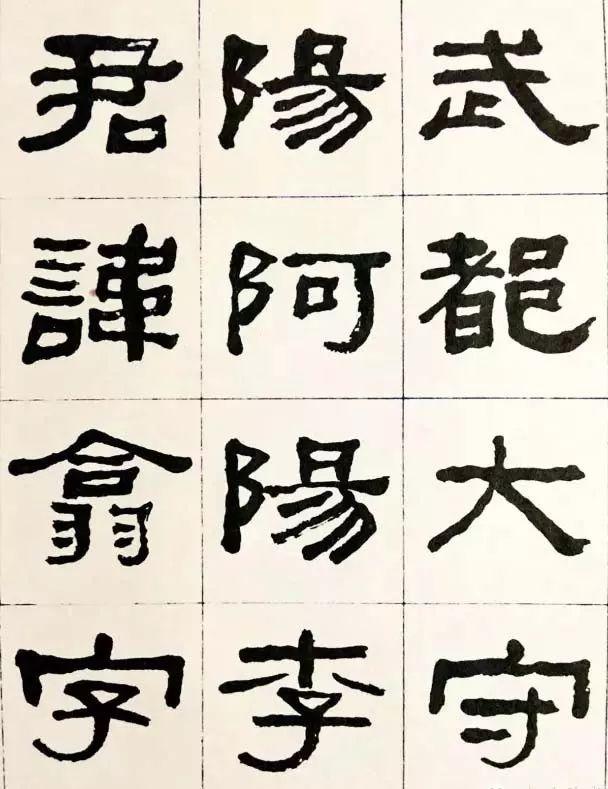 武都大守
陽阿陽李
君諱翕字